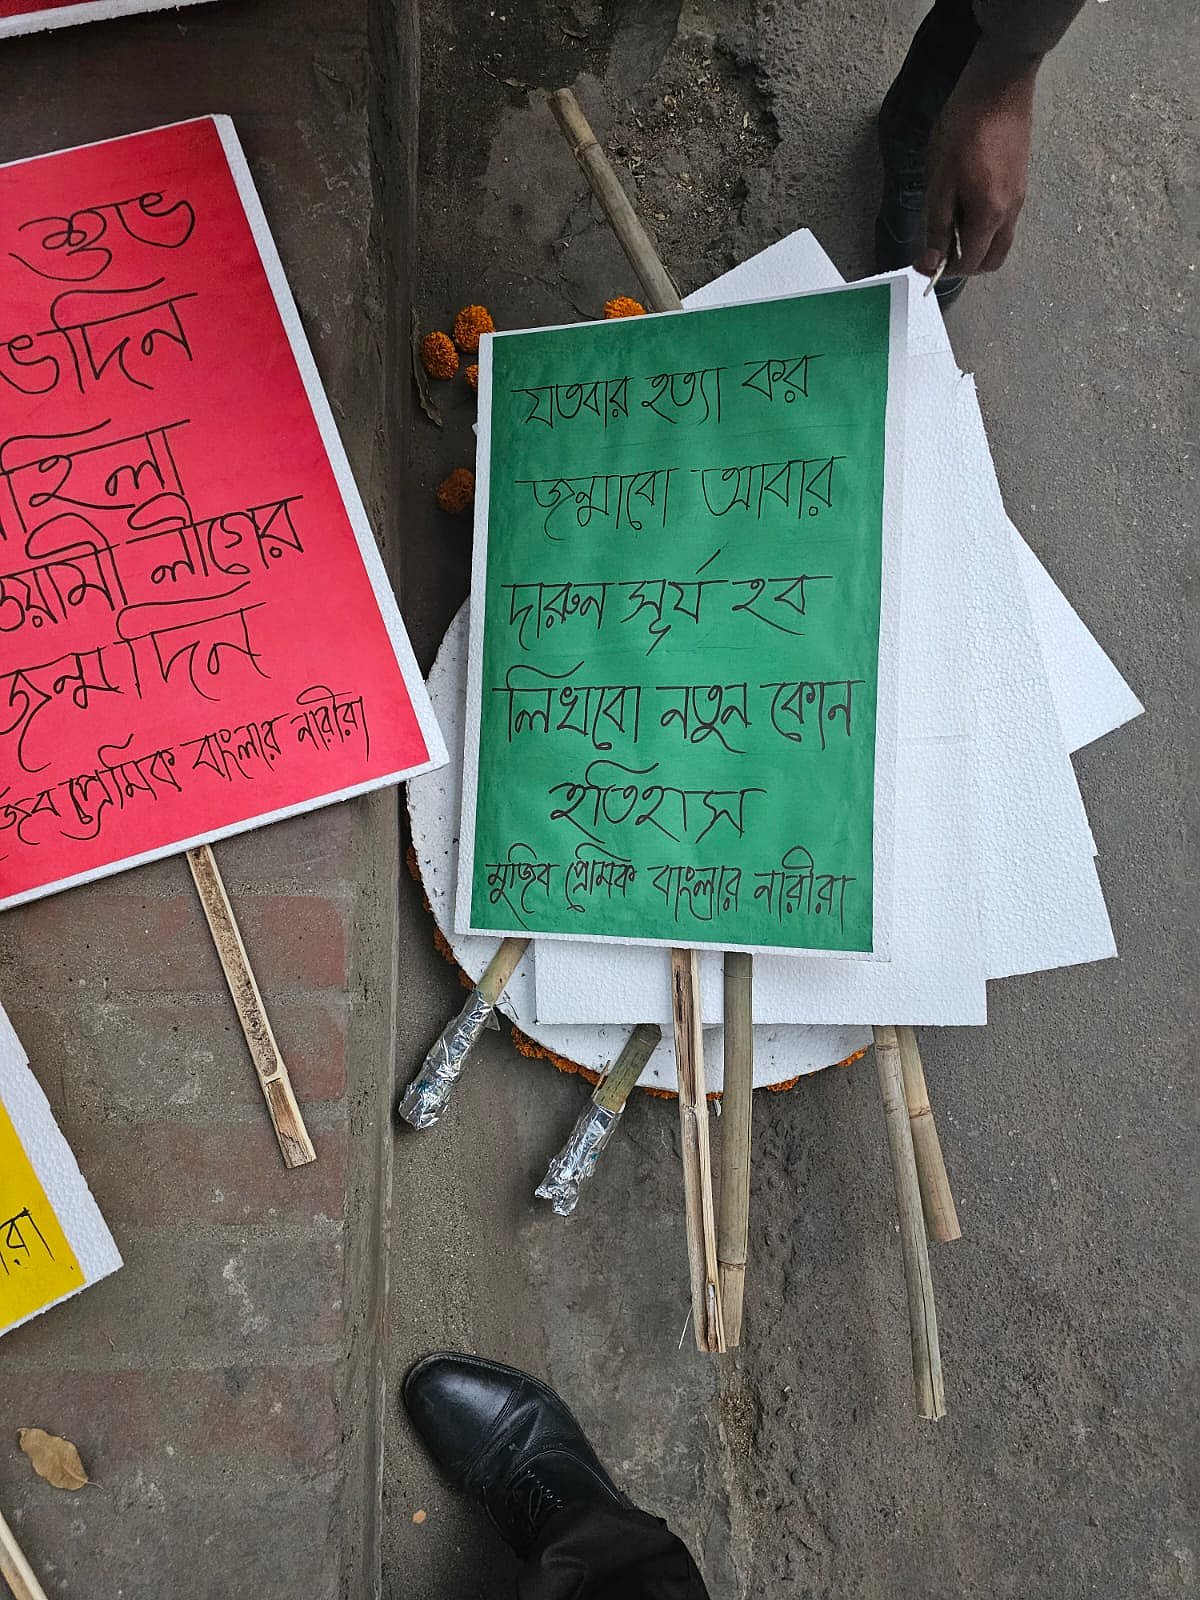 শুভ
ভদিন
হিলা
ওয়ামী লীগের
জন্মদিন
জিব প্রেমিক বাংলার নারীরা
যতবার হত্যা কর
জন্মাবো আবার
দারুন সূর্য হব
লিখবো নতুন কোন
ইতিহাস
মুজিব প্রেমিক বাংলার নারীরা
রা